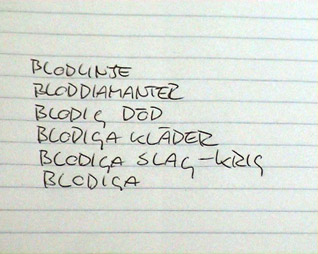 BLODLINJE
BLODDIAMANTER
BLODIG DÖD
BLODIGA KLÄDER
BLODIGA SLAG-KRIG
BLODIGA